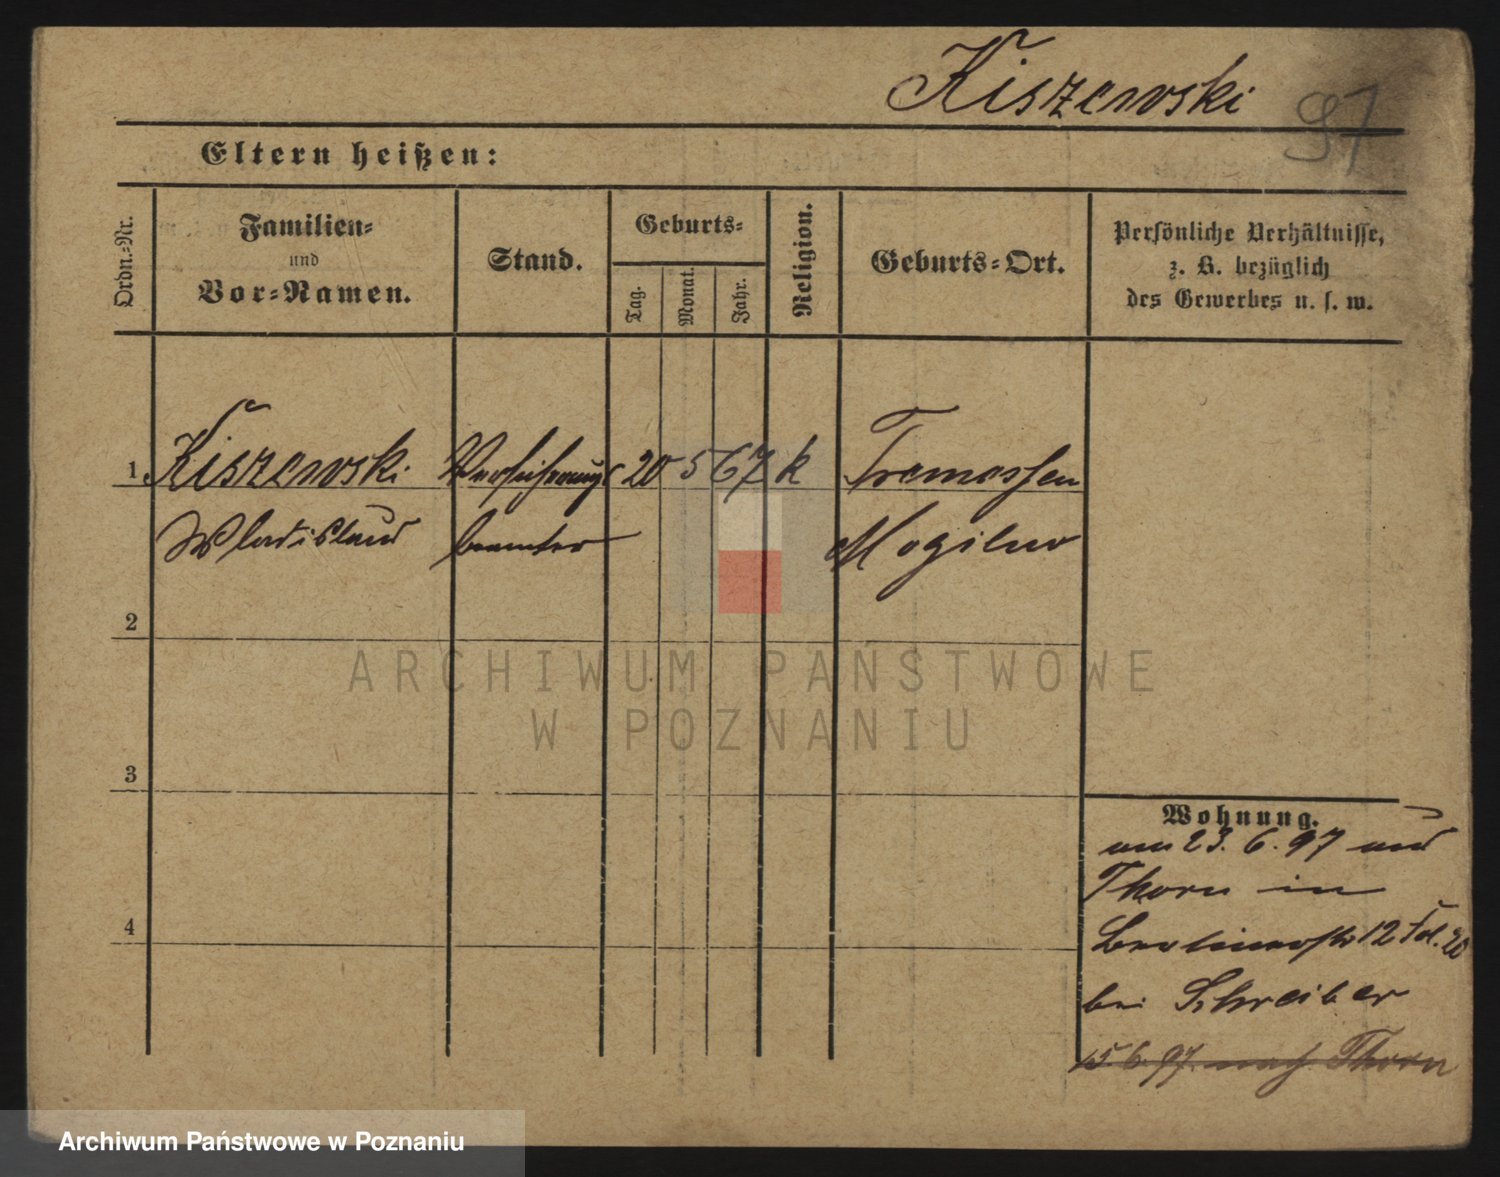 Kiszewski
97
Eltern heißen:
Ordn.-Nr.
Familien-
und
Vor-Namen.
Stand.
Geburts-
Tag.
Monat.
Jahr.
Religion.
Geburts-Ort.
Persönliche Verhältnisse,
z. B. bezüglich
des Gewerbes u. s. w.
1 Kiszewski Versicherungs 20 5 67 k Tremessen
Wladislaus beamter Mogilno
2
3
4
ARCHIWUM PAŃSTWOWE
W POZNANIU
Wohnung.
am 23. 6. 97 aus
Thorn in
Berlinerstr 12 Fol. 20
bei Schreiber
15 6. 97. nach Thorn
Archiwum Państwowe w Poznaniu